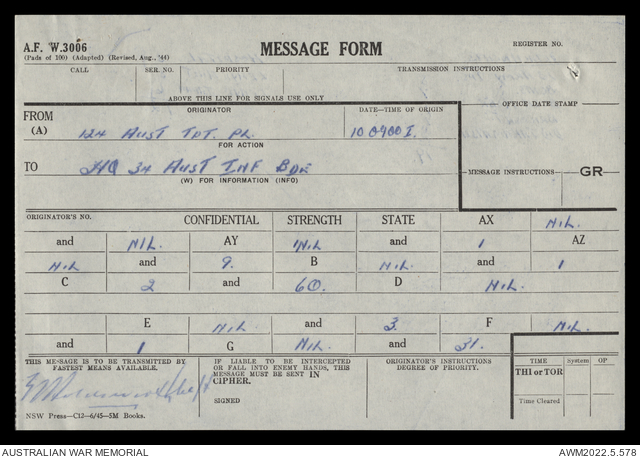 A.F. W.3006
(Pads of 100) (Adapted) (Revised, Aug., '44)
MESSAGE FORM
REGISTER NO.
CALL SER. NO. PRIORITY TRANSMISSION INSTRUCTIONS
ABOVE THIS LINE FOR SIGNALS USE ONLY
OFFICE DATE STAMP
FROM ORIGINATOR DATE–TIME OF ORIGIN
(A) 124 AUST TPT. PL. 100900 I.
FOR ACTION
TO HQ 34 AUST INF BDE
(W) FOR INFORMATION (INFO)
MESSAGE INSTRUCTIONS GR
ORIGINATOR'S NO. CONFIDENTIAL STRENGTH STATE AX NIL.
and NIL. AY NIL and 1 AZ
NIL and 9. B NIL. and 1
C 2 and 60. D NIL.
E NIL and 3. F NIL.
and 1 G NIL. and 31.
THIS MESSAGE IS TO BE TRANSMITTED BY
FASTEST MEANS AVAILABLE.
IF LIABLE TO BE INTERCEPTED
OR FALL INTO ENEMY HANDS, THIS
MESSAGE MUST BE SENT IN
CIPHER.
SIGNED
ORIGINATOR'S INSTRUCTIONS
DEGREE OF PRIORITY.
TIME System OP
THI or TOR
Time Cleared
NSW Press—C12—6/45—5M Books.
AUSTRALIAN WAR MEMORIAL
AWM2022.5.578